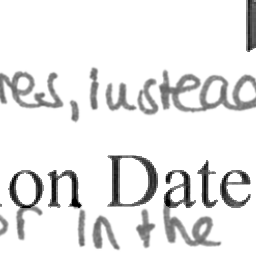 res, instead
ion Date
or in the